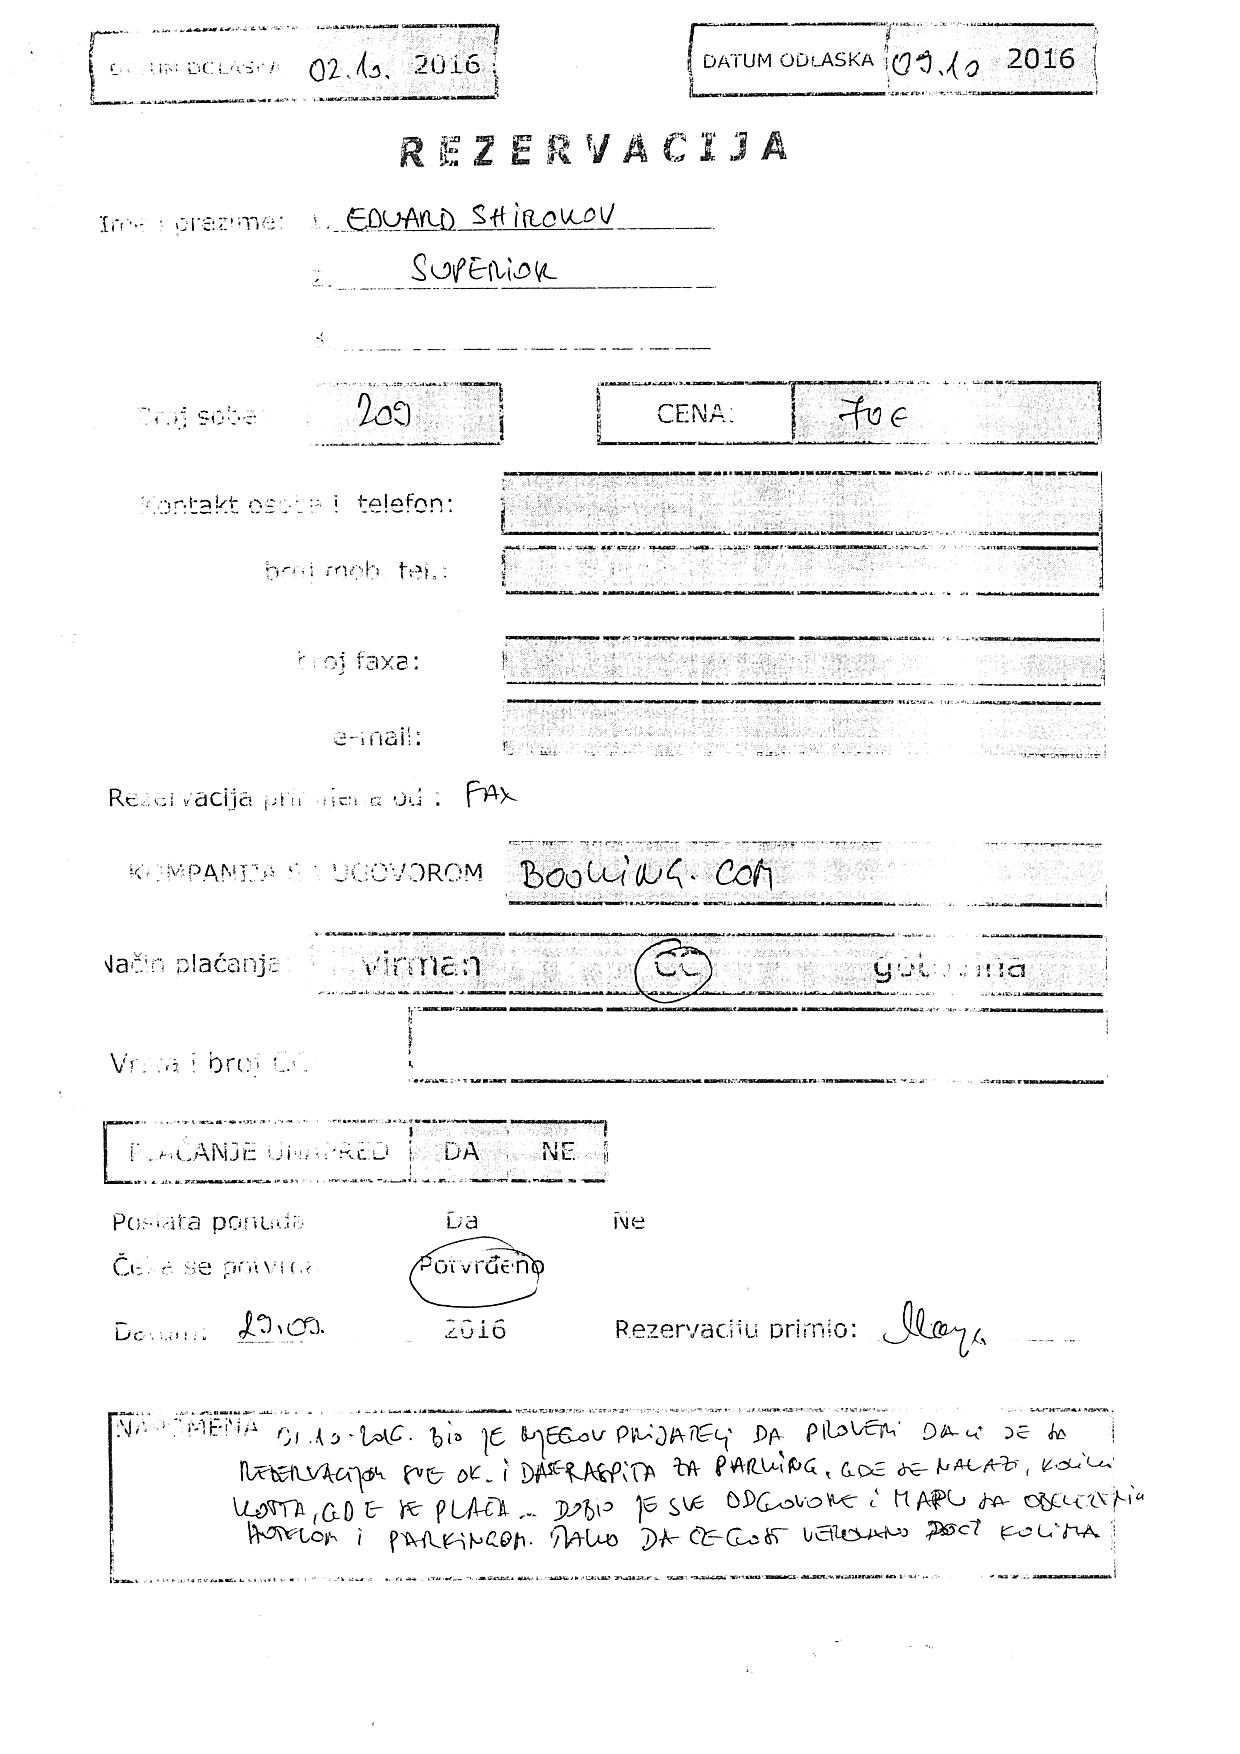 DATUM DOLASKA 02.10. 2016
DATUM ODLASKA 09.10 2016
REZERVACIJA
Ime i prezime: 1. EDUARD SHIROKOV
2. SUPERIOR
3.
Broj sobe 209 CENA: 70€
Kontakt osoba i telefon:
broj mob. tel.:
broj faxa:
e-mail:
Rezervacija primljena od : FAX
KOMPANIJA SA UGOVOROM BOOKING.COM
Način plaćanja: virman CC gotovina
Vrsta i broj CC
PLAĆANJE UNAPRED DA NE
Poslata ponuda Da Ne
Čeka se potvrda Potvrđeno
Datum: 29.09. 2016 Rezervaciju primio: Maya
NAPOMENA 01.10.2016. BIO JE NJEGOV PRIJATELJ DA PROVERI DA LI JE SA
REZERVACIJOM SVE OK. I DA SE RASPITA ZA PARKING, GDE SE NALAZI, KOLIKO
KOSTA, GDE SE PLAĆA... DOBIO JE SVE ODGOVORE I MAPU SA OBELEZENIM
HOTELOM I PARKINGOM. DA CE GOST VEROVATNO DOCI KOLIMA